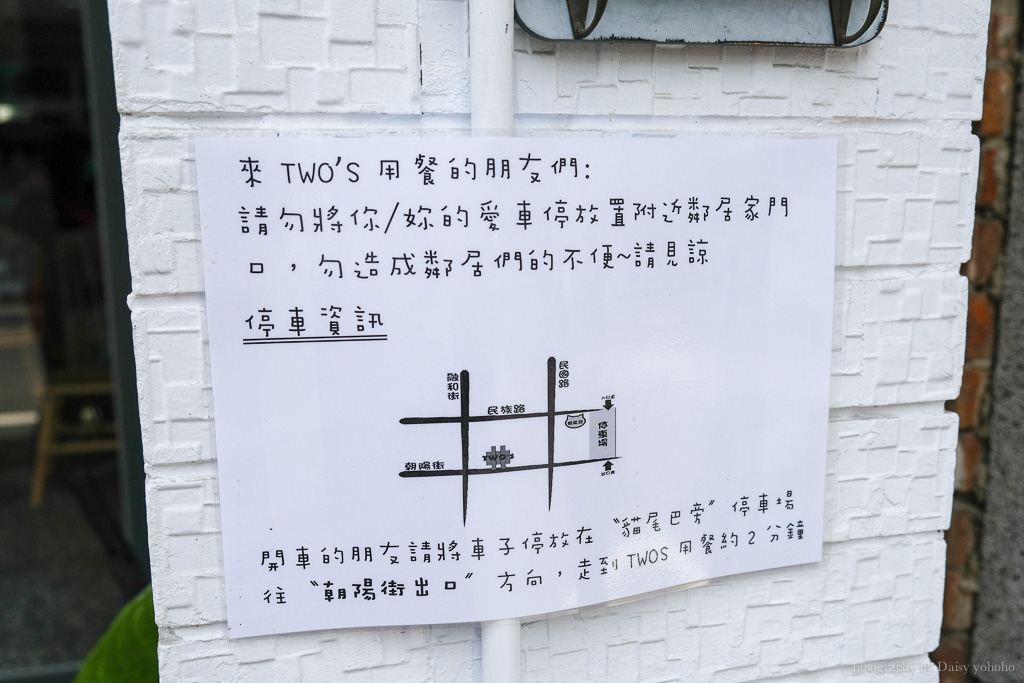 來 TWO'S 用餐的朋友們:
請勿將你/妳的愛車停放置附近鄰居家門
口，勿造成鄰居們的不便~請見諒
停車資訊
融和街
民國路
民族路
停車場
TWO'S
朝陽街
開車的朋友請將車子停放在 "貓尾巴旁" 停車場
往 "朝陽街出口" 方向，走到 TWOS 用餐約 2 分鐘
photography by Daisy yohoho